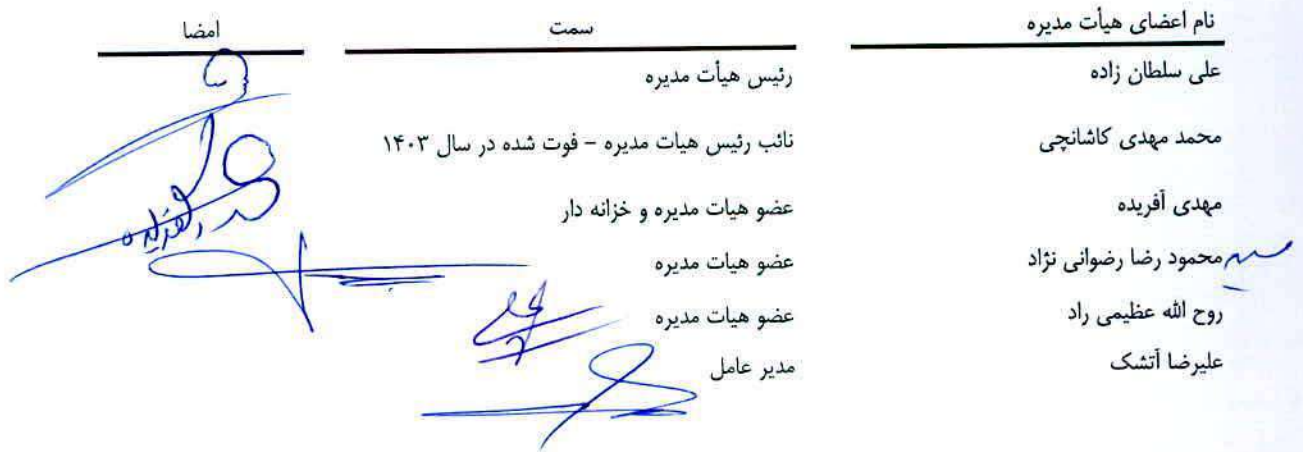 نام اعضای هیأت مدیره سمت امضا
علی سلطان زاده رئیس هیأت مدیره
محمد مهدی کاشانچی نائب رئیس هیات مدیره - فوت شده در سال ۱۴۰۳
مهدی آفریده عضو هیات مدیره و خزانه دار
محمود رضا رضوانی نژاد عضو هیات مدیره
روح الله عظیمی راد عضو هیات مدیره
علیرضا آتشک مدیر عامل